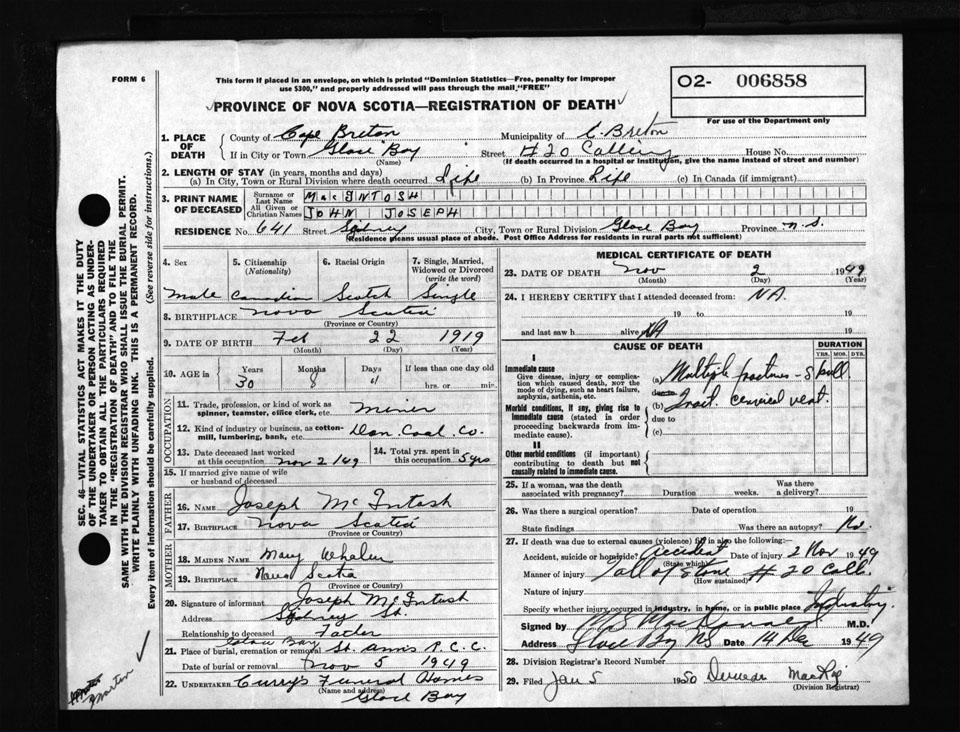 FORM 6
This form if placed in an envelope, on which is printed "Dominion Statistics—Free, penalty for improper
use $300," and properly addressed will pass through the mail "FREE"
02- 006858
For use of the Department only
PROVINCE OF NOVA SCOTIA—REGISTRATION OF DEATH
1. PLACE OF DEATH
County of Cape Breton Municipality of C. Breton
If in City or Town Glace Bay Street #20 Colliery House No.
(Name) (If death occurred in a hospital or institution, give the name instead of street and number)
2. LENGTH OF STAY (in years, months and days)
(a) In City, Town or Rural Division where death occurred Life (b) In Province Life (c) In Canada (if immigrant)
3. PRINT NAME OF DECEASED
Surname or Last Name MacINTOSH
All Given or Christian Names JOHN JOSEPH
RESIDENCE No. 641 Street Sydney City, Town or Rural Division Glace Bay Province N.S.
(Residence means usual place of abode. Post Office Address for residents in rural parts not sufficient)
4. Sex
Male
5. Citizenship (Nationality)
Canadian
6. Racial Origin
Scotch
7. Single, Married, Widowed or Divorced (write the word)
Single
8. BIRTHPLACE Nova Scotia
(Province or Country)
9. DATE OF BIRTH Feb 22 1919
(Month) (Day) (Year)
10. AGE in
Years 30
Months 8
Days 11
If less than one day old
hrs. or min.
OCCUPATION
11. Trade, profession, or kind of work as
spinner, teamster, office clerk, etc. miner
12. Kind of industry or business, as cotton-
mill, lumbering, bank, etc. Dom. Coal Co.
13. Date deceased last worked
at this occupation Nov 2/49
14. Total yrs. spent in
this occupation 5 yrs
15. If married give name of wife
or husband of deceased
FATHER
16. Name Joseph McIntosh
17. Birthplace Nova Scotia
(Province or Country)
MOTHER
18. Maiden Name Mary Whalen
19. Birthplace Nova Scotia
(Province or Country)
20. Signature of informant Joseph McIntosh
Address Sydney St.
Relationship to deceased Father
Glace Bay
21. Place of burial, cremation or removal St. Anns R.C.C.
Date of burial or removal Nov 5 1949
22. UNDERTAKER Curry's Funeral Homes
(Name and address)
Glace Bay
MEDICAL CERTIFICATE OF DEATH
23. DATE OF DEATH Nov 2 1949
(Month) (Day) (Year)
24. I HEREBY CERTIFY that I attended deceased from: NA.
19 to 19
and last saw h alive NA 19
CAUSE OF DEATH
DURATION
YRS. MOS. DYS.
I
Immediate cause
Give disease, injury or complica-
tion which caused death, not the
mode of dying, such as heart failure,
asphyxia, asthenia, etc.
(a) Multiple fractures - skull
due to
Morbid conditions, if any, giving rise to
immediate cause (stated in order
proceeding backwards from im-
mediate cause).
(b) Fract. cervical vert.
due to
(c)
II
Other morbid conditions (if important)
contributing to death but not
causally related to immediate cause.
25. If a woman, was the death
associated with pregnancy? Duration weeks. Was there
a delivery?
26. Was there a surgical operation? Date of operation 19
State findings Was there an autopsy? No.
27. If death was due to external causes (violence) fill in also the following:—
Accident, suicide or homicide? Accident Date of injury 2 Nov 1949
(State which)
Manner of injury Fall of Stone #20 Coll.
(How sustained)
Nature of injury
Specify whether injury occurred in industry, in home, or in public place Industry.
Signed by M.S. MacDonald M.D.
Address Glace Bay NS Date 14 Dec 1949
28. Division Registrar's Record Number
29. Filed Jan 5 1950
(Division Registrar)
SEC. 46—VITAL STATISTICS ACT MAKES IT THE DUTY
OF THE UNDERTAKER OR PERSON ACTING AS UNDER-
TAKER TO OBTAIN ALL THE PARTICULARS REQUIRED
IN THE "REGISTRATION OF DEATH" AND TO FILE THE
SAME WITH THE DIVISION REGISTRAR WHO SHALL ISSUE THE BURIAL PERMIT.
WRITE PLAINLY WITH UNFADING INK. THIS IS A PERMANENT RECORD.
Every item of information should be carefully supplied. (See reverse side for instructions.)